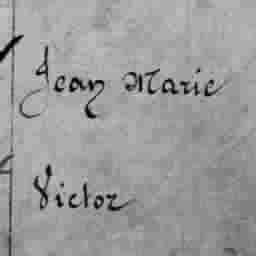 Jean Marie
Victor